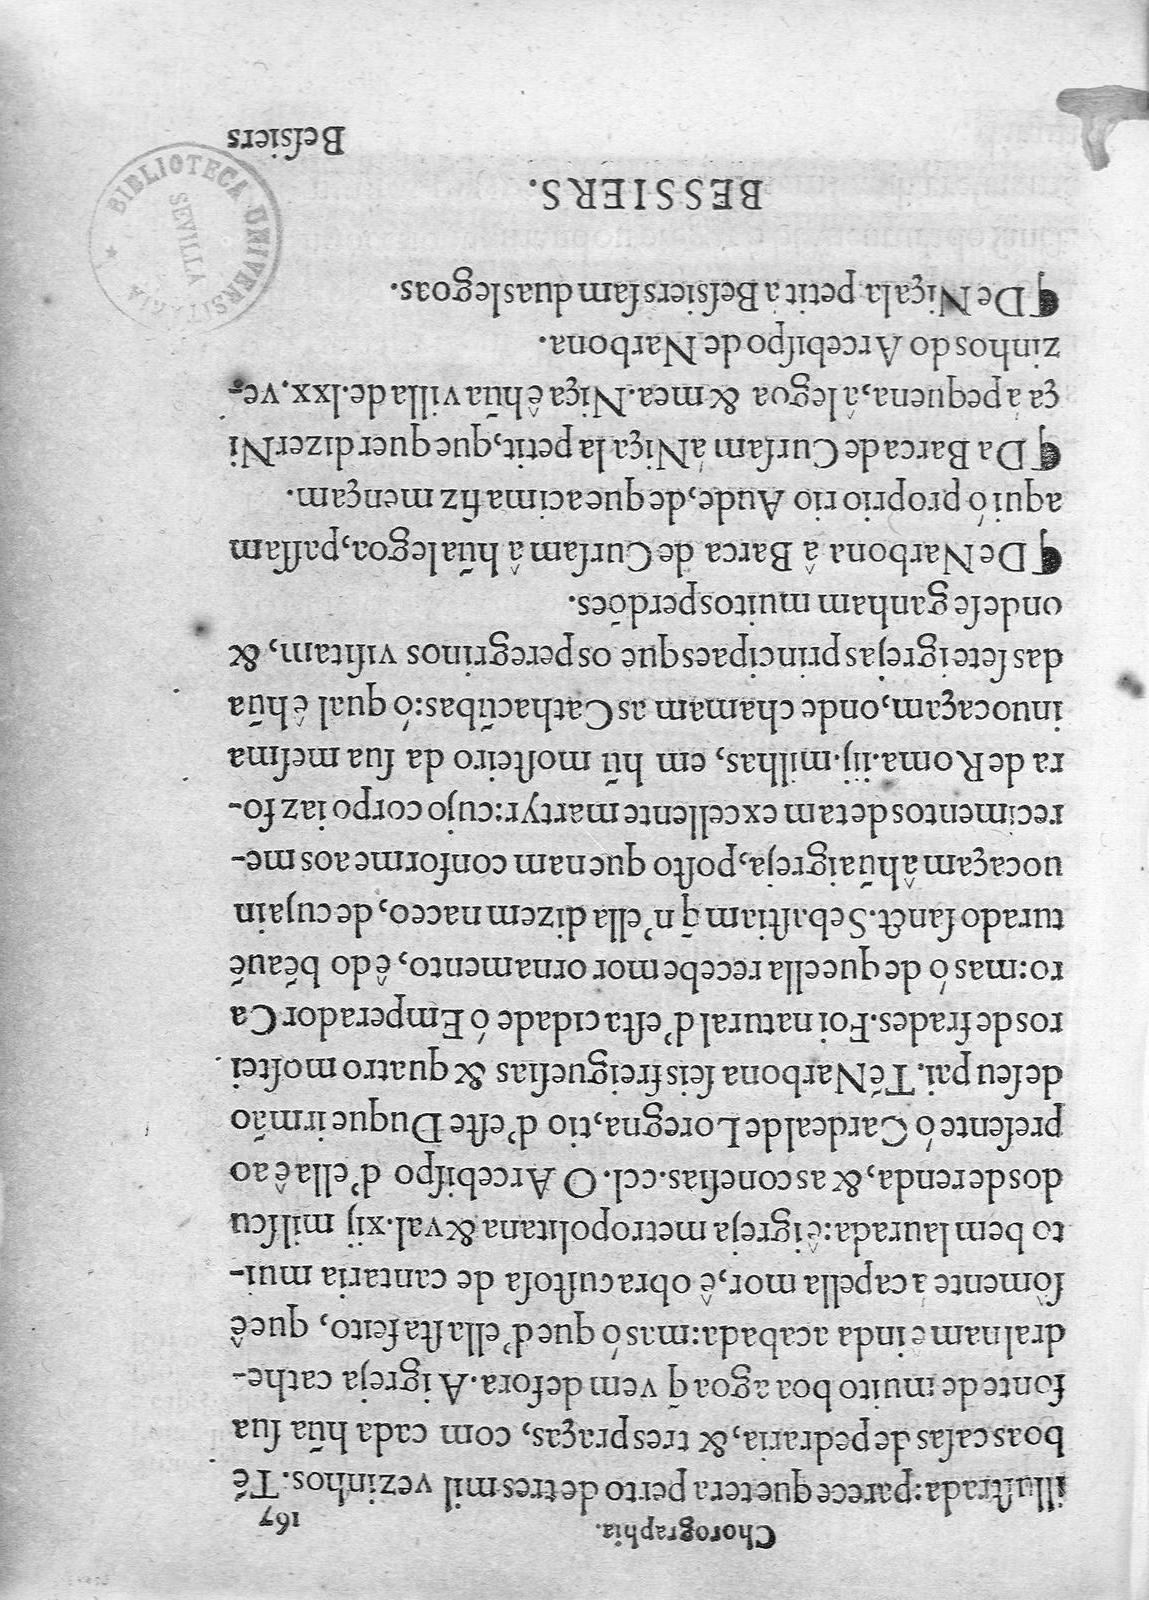 Chorographia. 167
illuſtrada: parece que tera perto de tres mil vezinhos. Tẽ
boas caſas de pedraria, & tres praças, com cada hũa ſua
fonte de muito boa agoa q̃ vem de fora. A igreja cathe-
dral nam ê inda acabada: mas ó que d'ella ſta feito, que ê
ſómente á capella mor, ê obra cuſtoſa de cantaria mui-
to bem laurada: ê igreja metropolitana & val. xij mil ſcu
dos de renda, & as coneſias. ccl. O Arcebiſpo d'ella ê ao
preſente ó Cardeal de Loregna, tio d'eſte Duque irmão
de ſeu pai. Tẽ Narbona ſeis freigueſias & quatro moſtei
ros de frades. Foi natural d'eſta cidade ó Emperador Ca
ro: mas ó de que ella recebe mor ornamento, ê do bẽauẽ
turado ſanct. Sebaſtiam q̃ n'ella dizem naceo, de cuja in
uocaçam â hũa igreja, poſto que nam conforme aos me-
recimentos de tam excellente martyr: cujo corpo iaz fo-
ra de Roma. iij. milhas, em hũ moſteiro da ſua meſma
inuocaçam, onde chamam as Cathacũbas: ó qual ê hũa
das ſete igrejas principaes que os peregrinos viſitam, &
onde ſe ganham muitos perdões.
¶ De Narbona â Barca de Curſam â hũa legoa, paſſam
aqui ó proprio rio Aude, de que acima fiz mençam.
¶ Da Barca de Curſam á Niça la petit, que quer dizer Ni
ça á pequena, â legoa & mea. Niça ê hũa villa de. lxx. ve-
zinhos do Arcebiſpo de Narbona.
¶ De Niça la petit a Beſsiers ſam duas legoas.
BESSIERS.
Beſsiers
BIBLIOTECA UNIVERSITARIA
SEVILLA